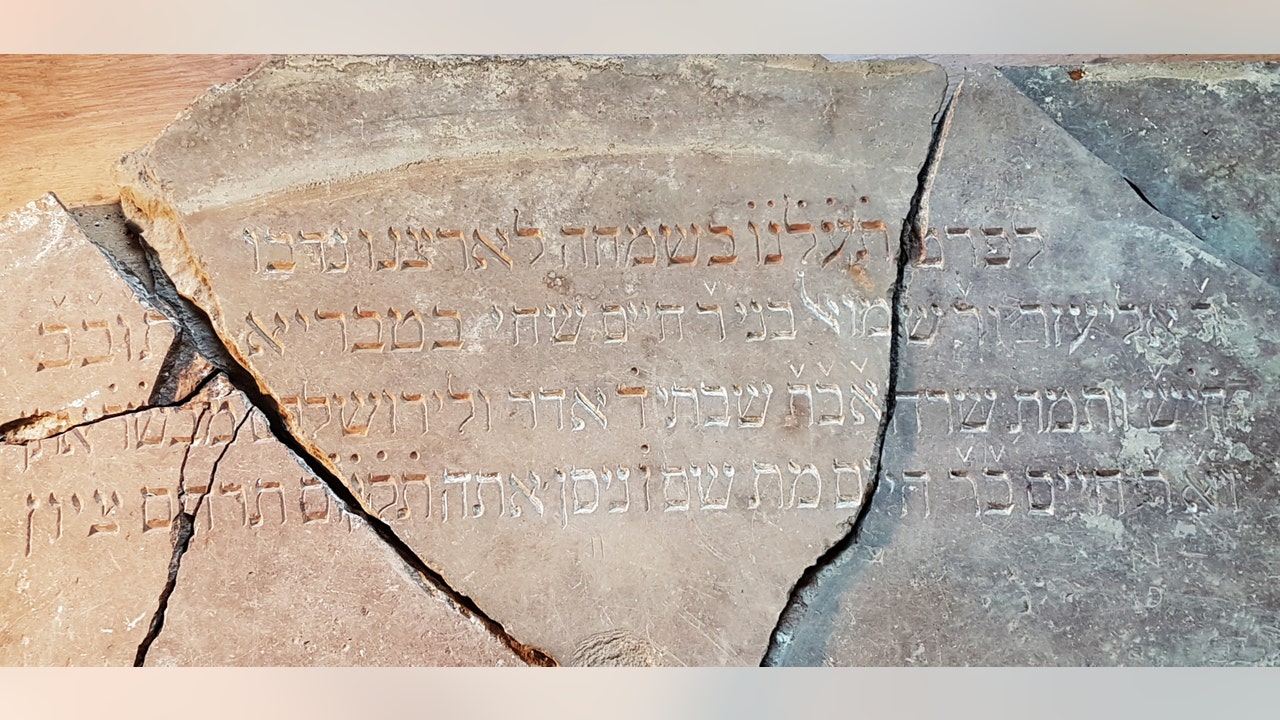 לפרט תעלנו בשמחה לארצנו נדבו
ר אליעזר ור שמואל בני ר חיים שחי בטבריא תובב
ותמת שרה אבת שבתי ד אדר
ואר חיים בר חיים מת שם ו ניסן אתה תקום תרחם ציון